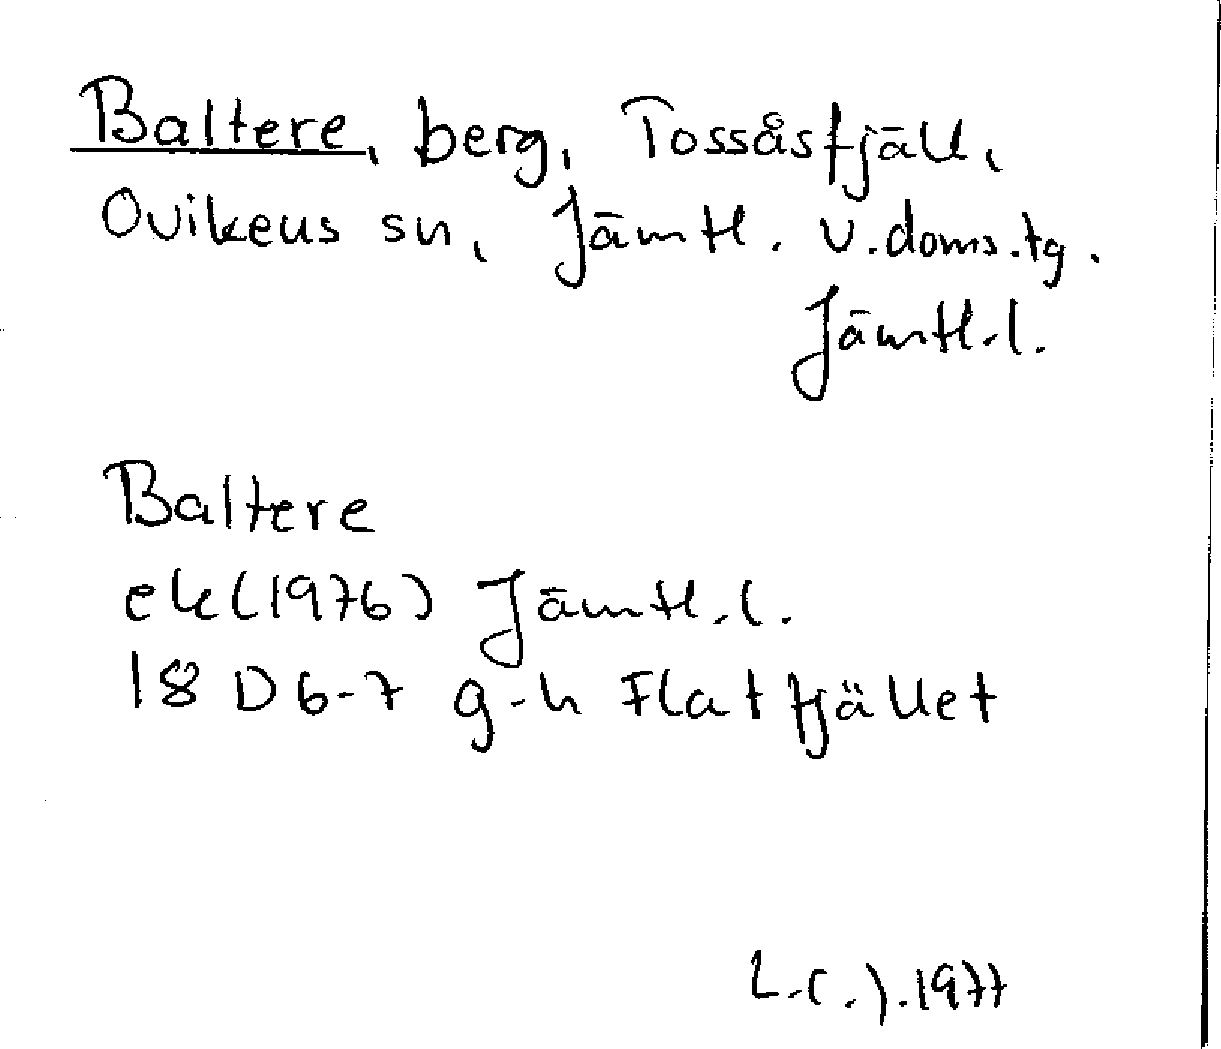 Baltere, berg, Tossåsfjäll,
Ovikens sn, Jämtl. v. doms.tg.
Jämtl.l.
Baltere
ek (1976) Jämtl.l.
18 D 6-7 g-h Flatfjället
L.C.J. 1977